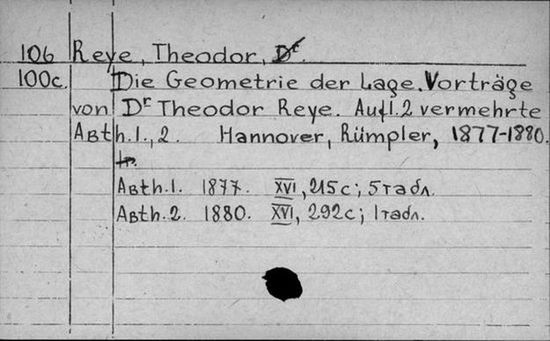 106 Reye, Theodor, Dr.
100c. Die Geometrie der Lage. Vorträge
von Dr Theodor Reye. Aufl. 2 vermehrte
Abth. 1., 2. Hannover, Rümpler, 1877-1880.
Abth. 1. 1877. XVI, 215 c; 5 табл.
Abth. 2. 1880. XVI, 292 c; 1 табл.